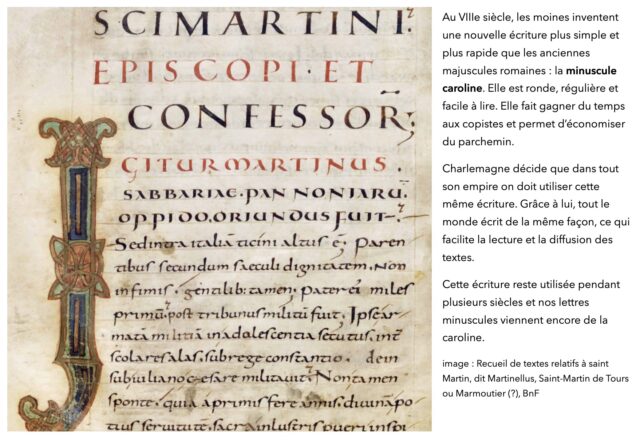 SCIMARTINI.
EPISCOPI·ET
CONFESSOR;
IGITURMARTINUS.
SABBARIAE·PANNONIARU.
OPPIDO,ORIUNDUS FUIT
Sedintraitaliā ticini altus ē, Paren
tibus secundum saeculi dignitatem, Non
infimis, gentilib; tamen, pater ei miles
primū, post tribunus militū fuit, Ipsear
matā militiā inadalescentia secutus, int
scolares alas, subrege constantio, dein
subiuliano cesare militavit, Nontamen
sponte, quia aprimis fere annis, divinā po
tius servitutē, sacra inlustris pueri inspi
Au VIIIe siècle, les moines inventent
une nouvelle écriture plus simple et
plus rapide que les anciennes
majuscules romaines : la minuscule
caroline. Elle est ronde, régulière et
facile à lire. Elle fait gagner du temps
aux copistes et permet d’économiser
du parchemin.
Charlemagne décide que dans tout
son empire on doit utiliser cette
même écriture. Grâce à lui, tout le
monde écrit de la même façon, ce qui
facilite la lecture et la diffusion des
textes.
Cette écriture reste utilisée pendant
plusieurs siècles et nos lettres
minuscules viennent encore de la
caroline.
image : Recueil de textes relatifs à saint
Martin, dit Martinellus, Saint-Martin de Tours
ou Marmoutier (?), BnF